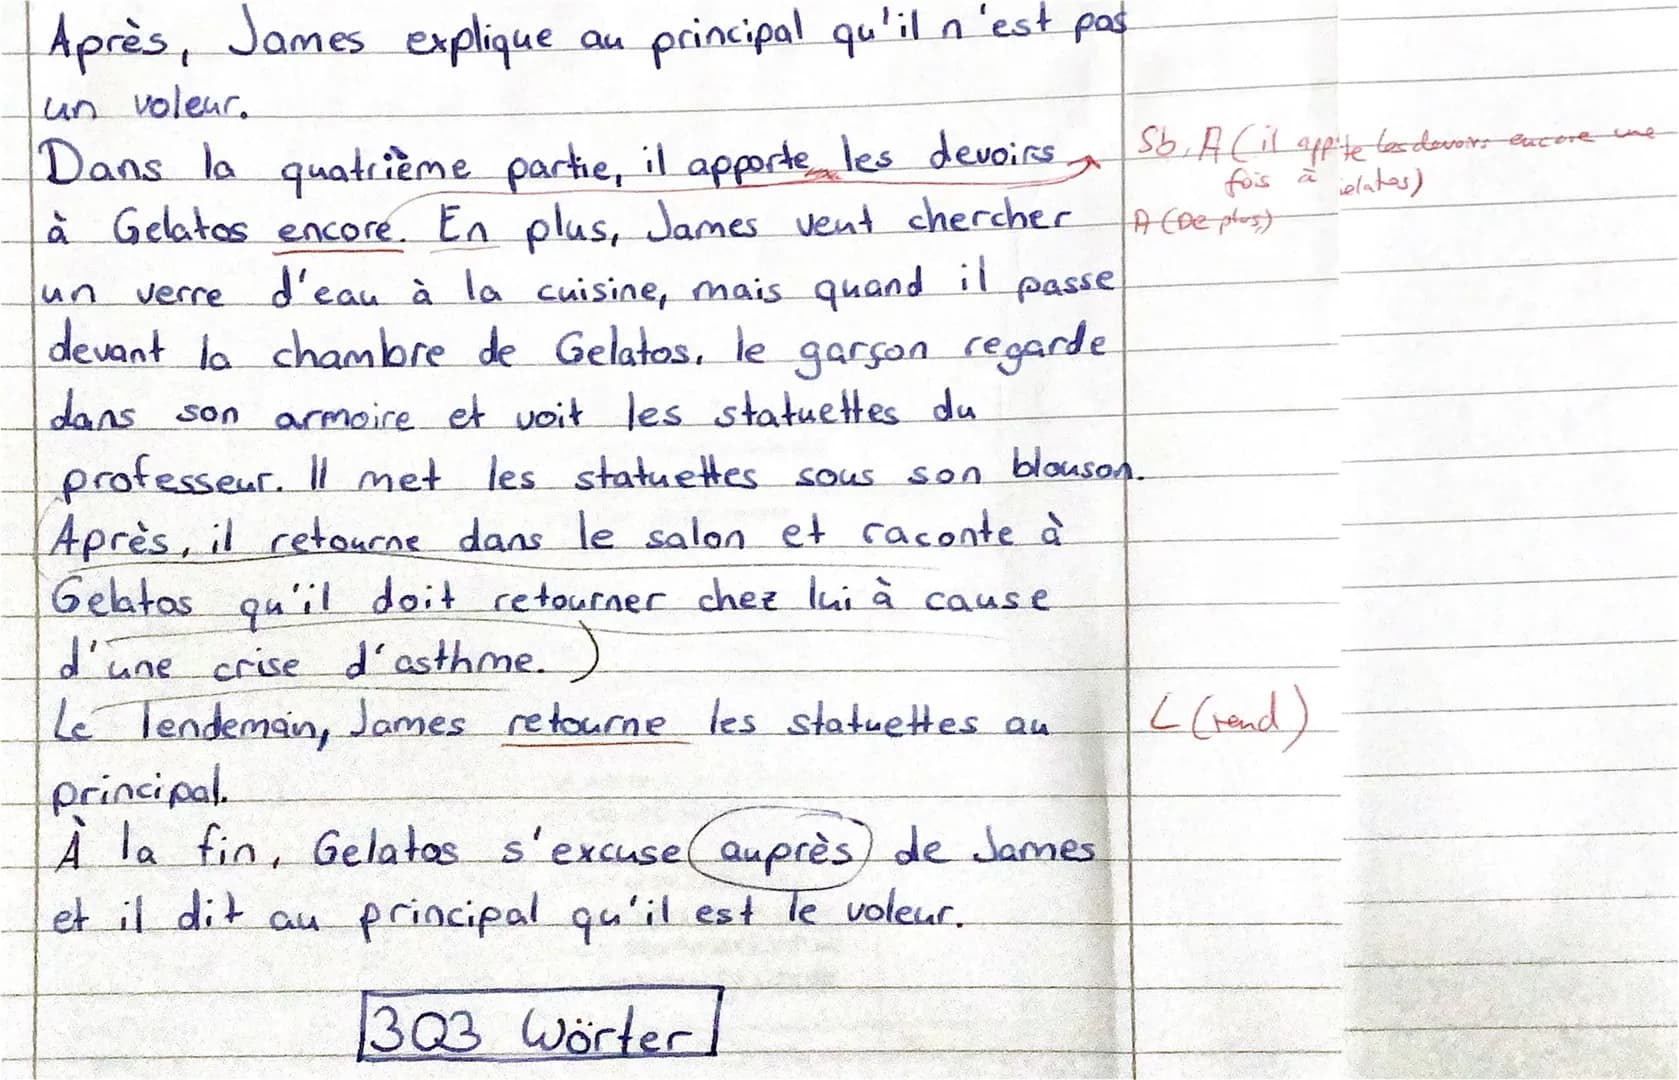 Après, James explique au principal qu'il n'est pas
un voleur.
Dans la quatrième partie, il apporte les devoirs
Sb, A (il appte les devoirs encore une
fois à
à Gelatos encore. En plus, James veut chercher
A (De plus,)
un verre d'eau à la cuisine, mais quand il passe
devant la chambre de Gelatos, le garçon regarde
dans son armoire et voit les statuettes du
professeur. Il met les statuettes sous son blouson.
Après, il retourne dans le salon et raconte à
Gelatos qu'il doit retourner chez lui à cause
d'une crise d'asthme. )
Le lendemain, James retourne les statuettes au
L (rend)
principal.
À la fin, Gelatos s'excuse auprès de James
et il dit au principal qu'il est le voleur.
303 Wörter